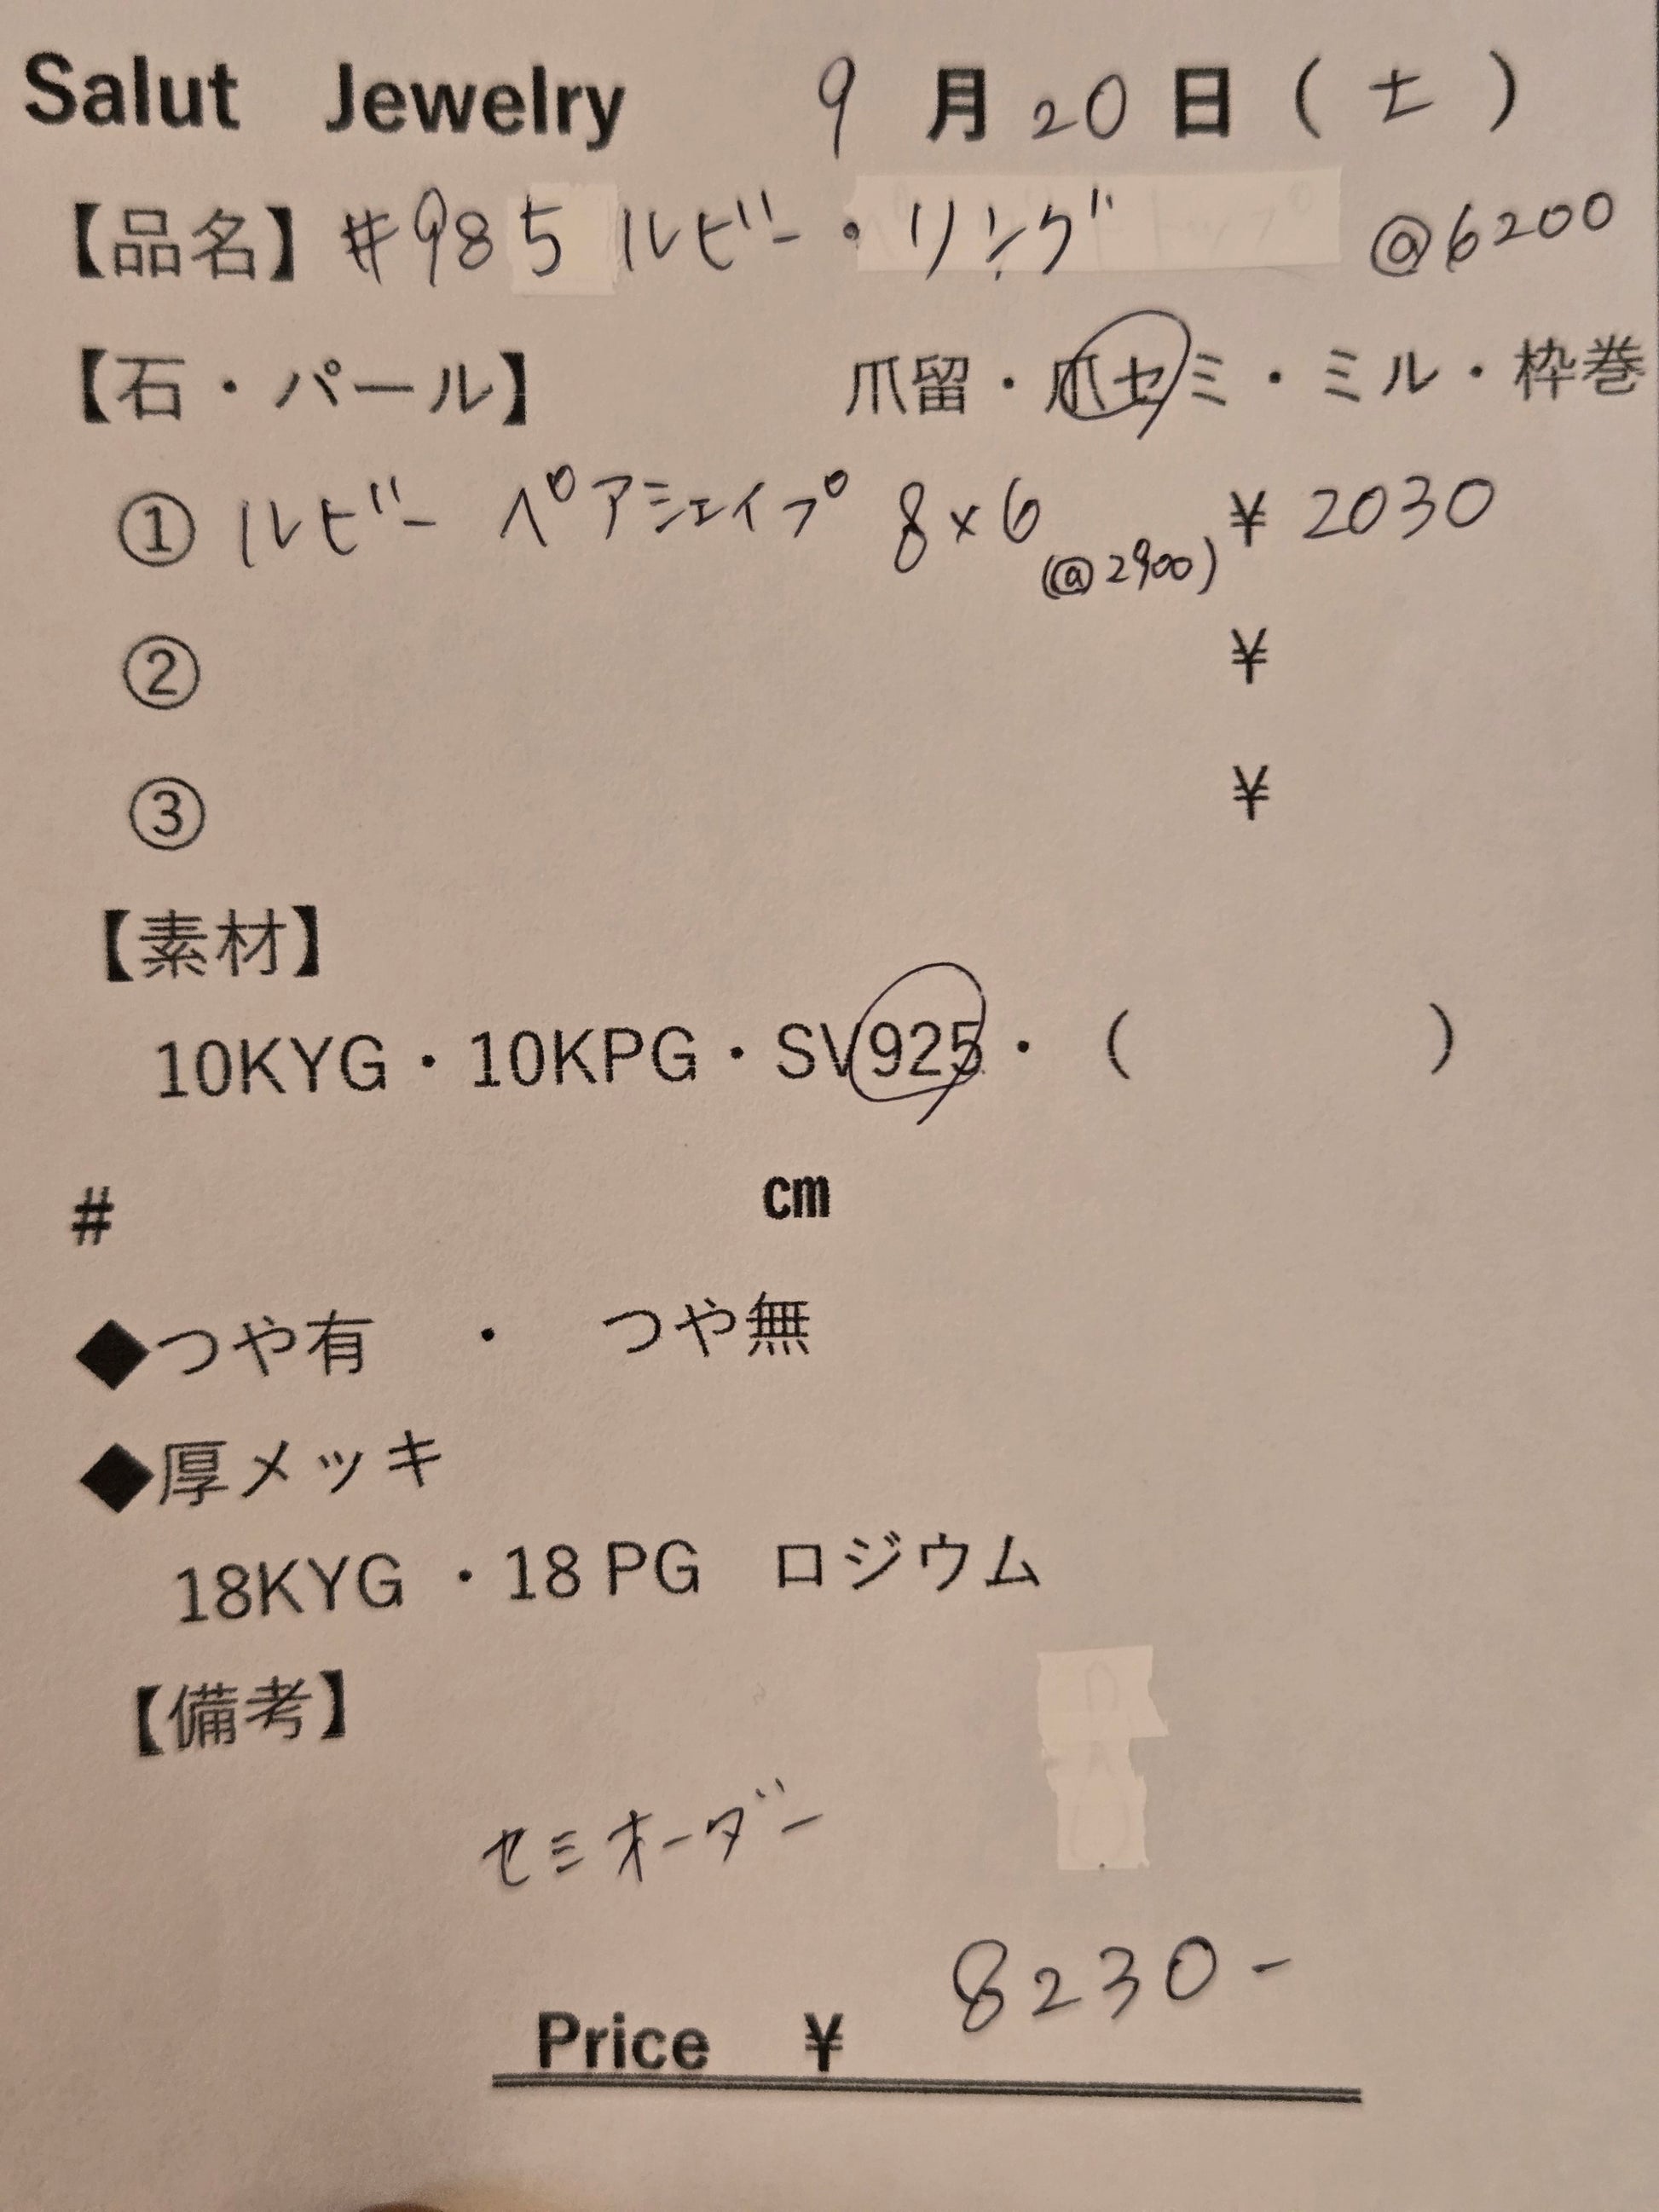 Salut Jewelry 9月20日(土)
【品名】#985 ルビー・リング @6200
【石・パール】 爪留・爪セミ・ミル・枠巻
① ルビー ペアシェイプ 8×6 (@2900) ¥2030
② ¥
③ ¥
【素材】
10KYG・10KPG・SV925・( )
# cm
◆つや有 ・ つや無
◆厚メッキ
18KYG ・18 PG ロジウム
【備考】
セミオーダー
Price ¥ 8230-